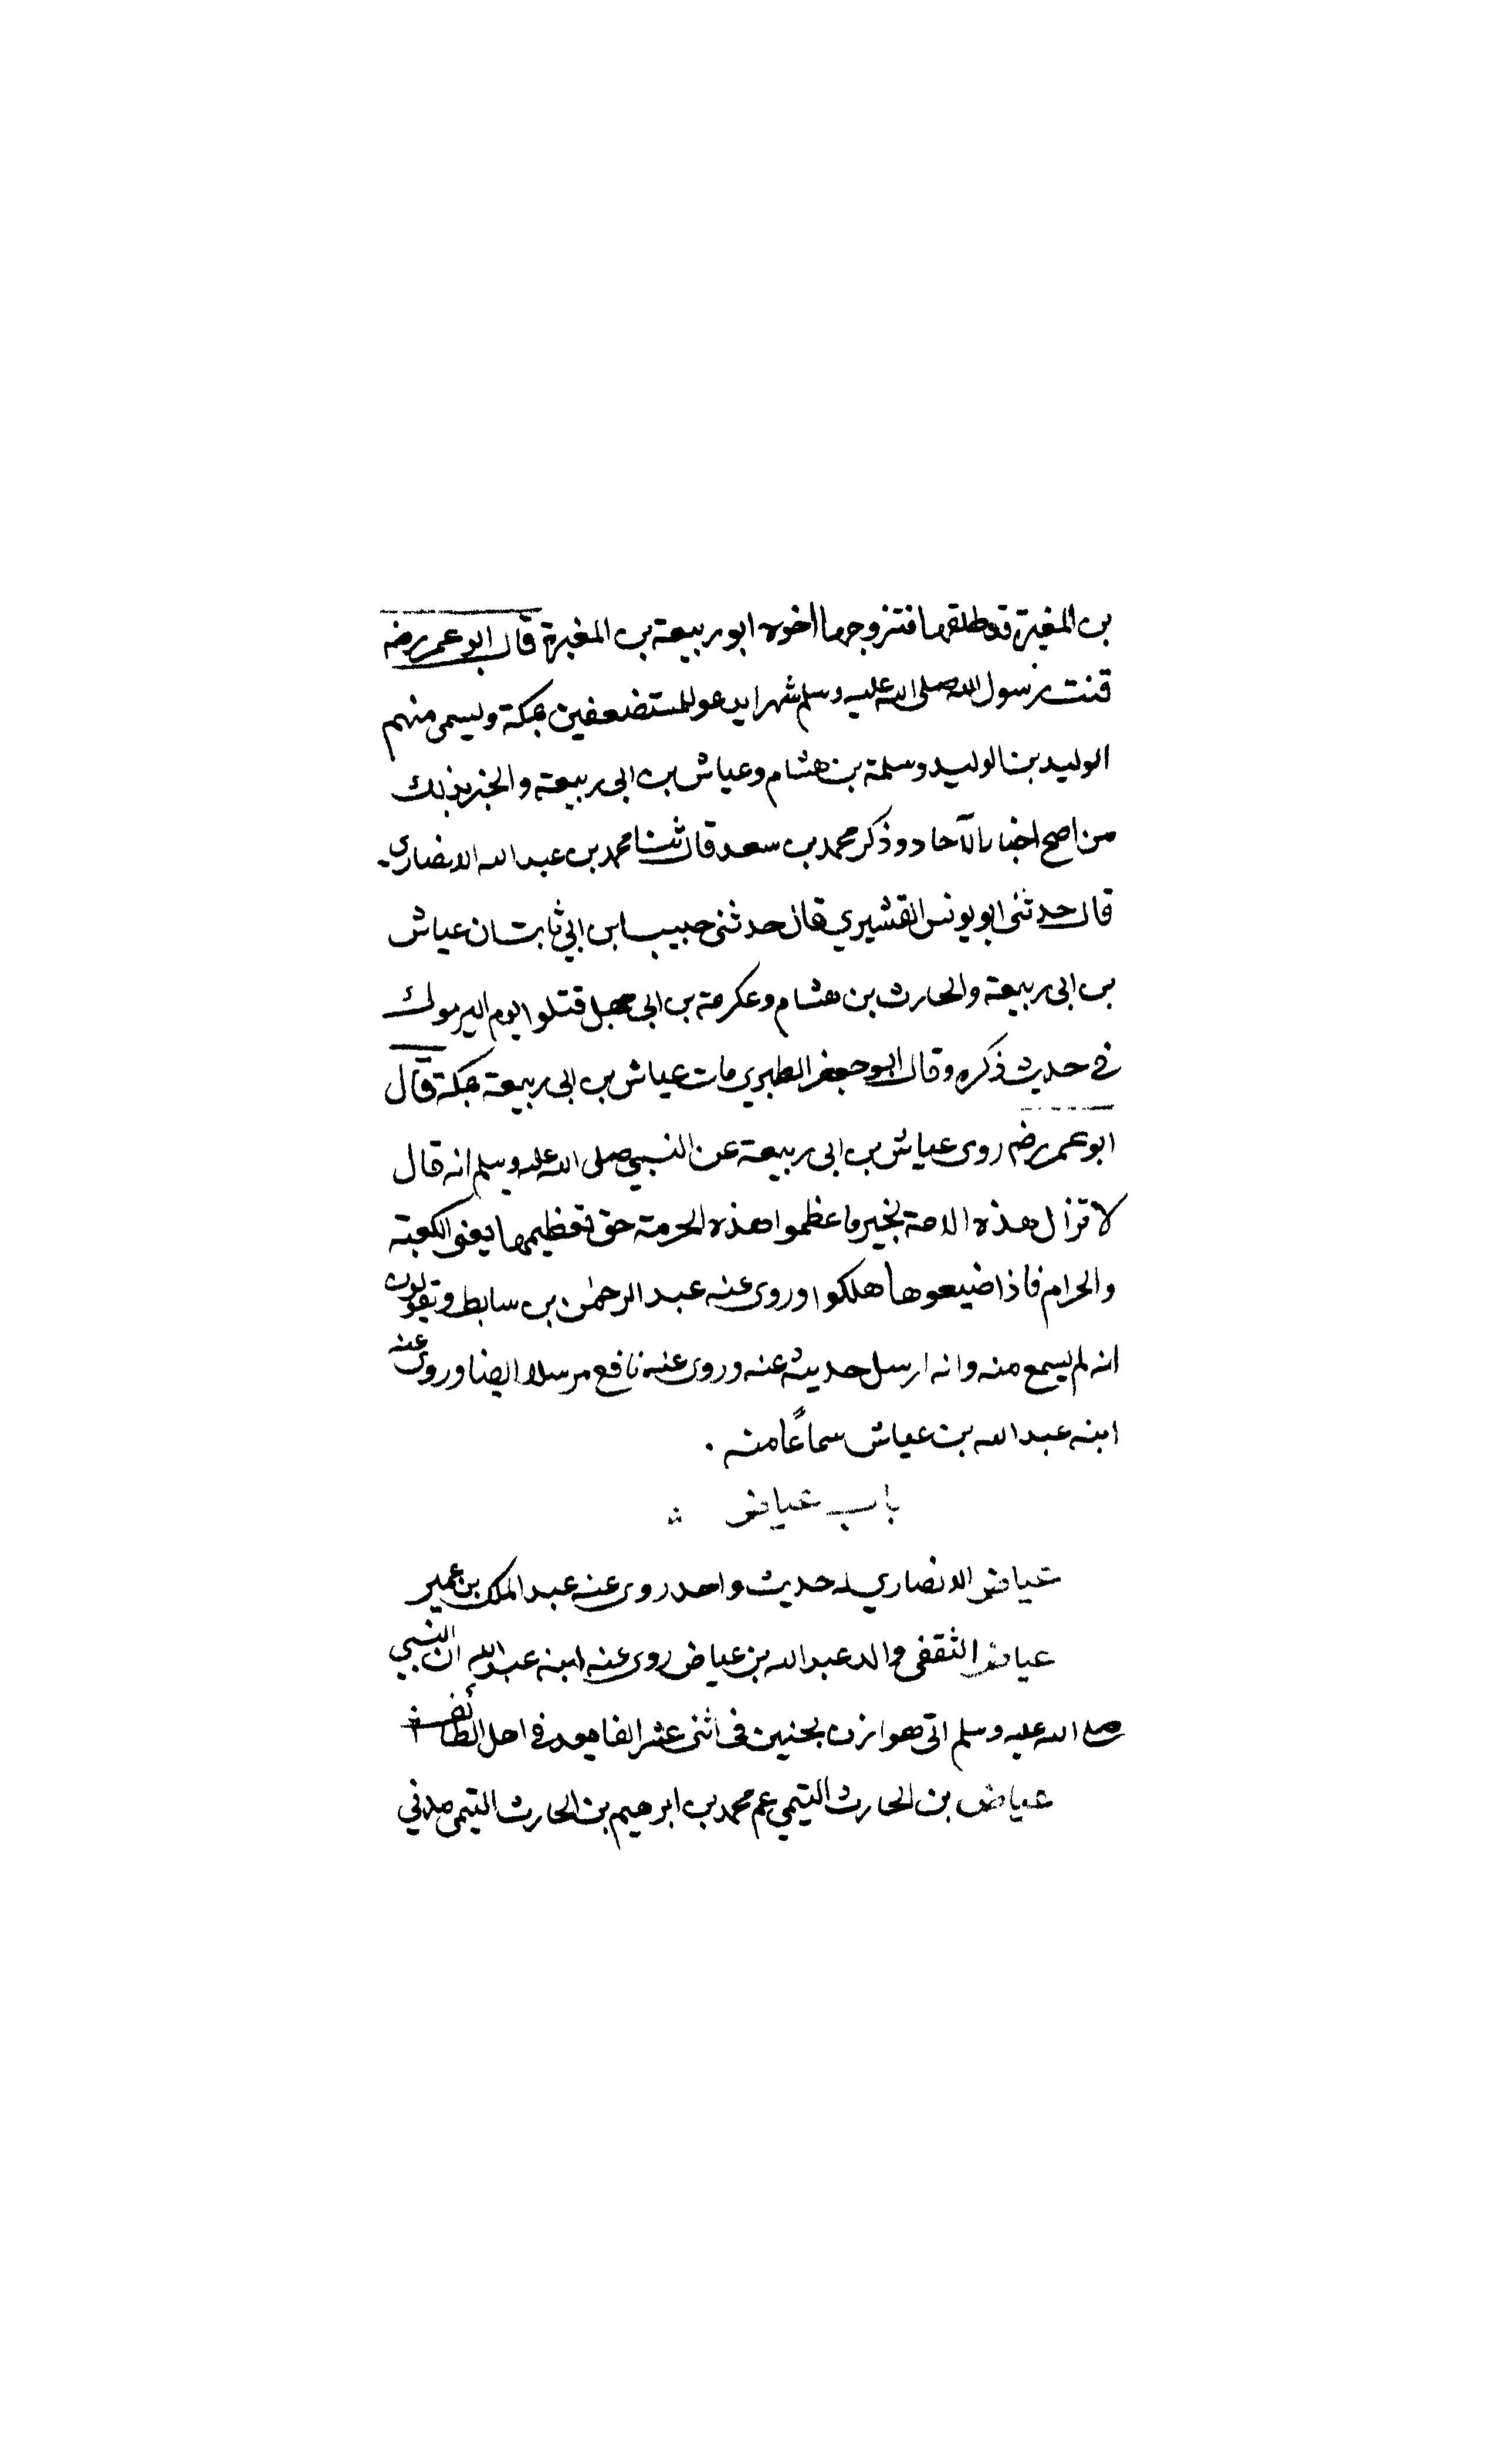 بن المغيرة قد طلقها فتزوجها اخوه ابو ربيعة بن المغيرة قال ابو عمر رضه
قنت رسول الله صلى الله عليه وسلم شهرا يدعو للمستضعفين بمكة ويسمى منهم
الوليد بن الوليد وسلمة بن هشام وعياش بن ابى ربيعة والخبر بذلك
من اصح اخبار الآحاد وذكر محمد بن سعد قال ثنا محمد بن عبد الله الانصاري
قال حدثنى ابو يونس القشيري قال حدثنى حبيب ابن ابي ثابت ان عياش
بن ابى ربيعة والحارث بن هشام وعكرمة بن ابى جهل قتلوا يوم اليرموك
في حديث ذكره وقال ابو جعفر الطبري مات عياش بن ابى ربيعة بمكة قال
ابو عمر رضه روى عياش بن ابى ربيعة عن النبي صلى الله عليه وسلم انه قال
لا تزال هذه الامة بخير ما عظموا هذه الحرمة حق تعظيمها يعنى الكعبة
والحرام فاذا ضيعوها هلكوا وروى عنه عبد الرحمن بن سابط ويقولون
انه لم يسمع منه وانه ارسل حديثه عنه وروى عنه نافع مرسلا ايضا وروى عنه
ابنه عبد الله بن عياش سماعًا منه .
باب عياض
عياض الانصاري له حديث واحد روى عنه عبد الملك بن عمير
عياض الثقفى والد عبد الله بن عياض روى عنه ابنه عبد الله ان النبي
صلى الله عليه وسلم اتى هوازن بحنين فى اثنى عشر الفا يعد في اهل الطائف
عياض بن الحارث التيمي عم محمد بن ابرهيم بن الحارث التيمى مدني